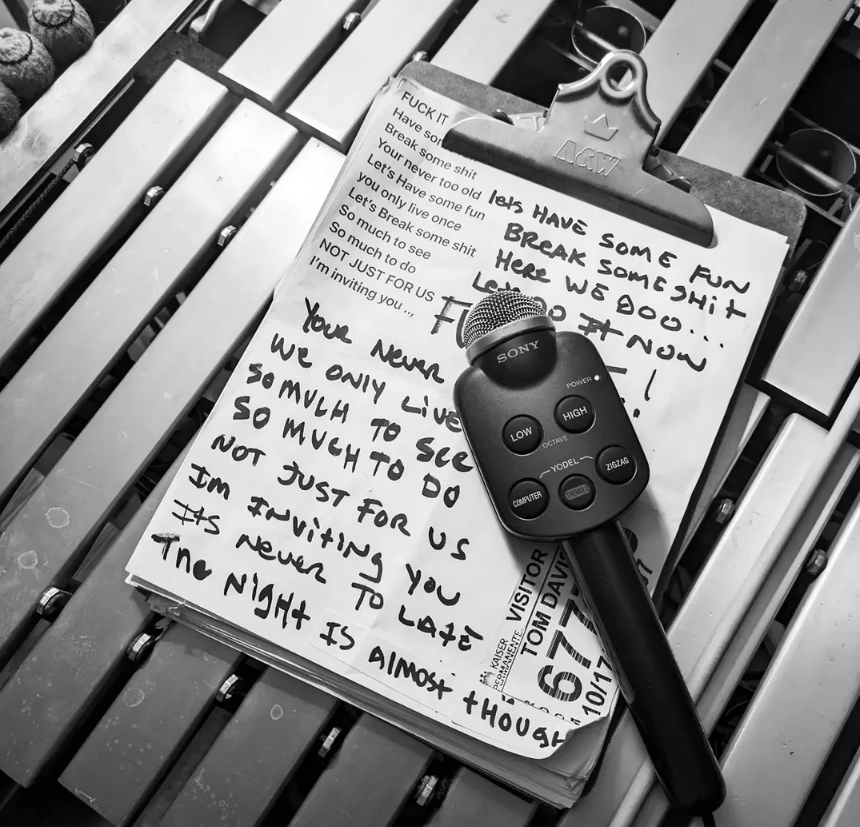 FUCK IT
Have some
Break some shit
Your never too old
Let's Have some fun
you only live once
Let's Break some shit
So much to see
So much to do
NOT JUST FOR US
I'm inviting you ..,
A&W
lets HAVE SOME FUN
BREAK SOME SHIT
HERE WE GOO...
IT NOW
!
YOUR NEVER
WE ONLY LIVE
SO MUCH TO SEE
SO MUCH TO DO
NOT JUST FOR US
IM INVITING YOU
ITS NEVER TO LATE
THE NIGHT IS ALMOST THOUGH
SONY
POWER
LOW
HIGH
OCTAVE
YODEL
COMPUTER
ZIGZAG
KAISER
PERMANENTE
VISITOR
TOM DAVIS
677
10/17